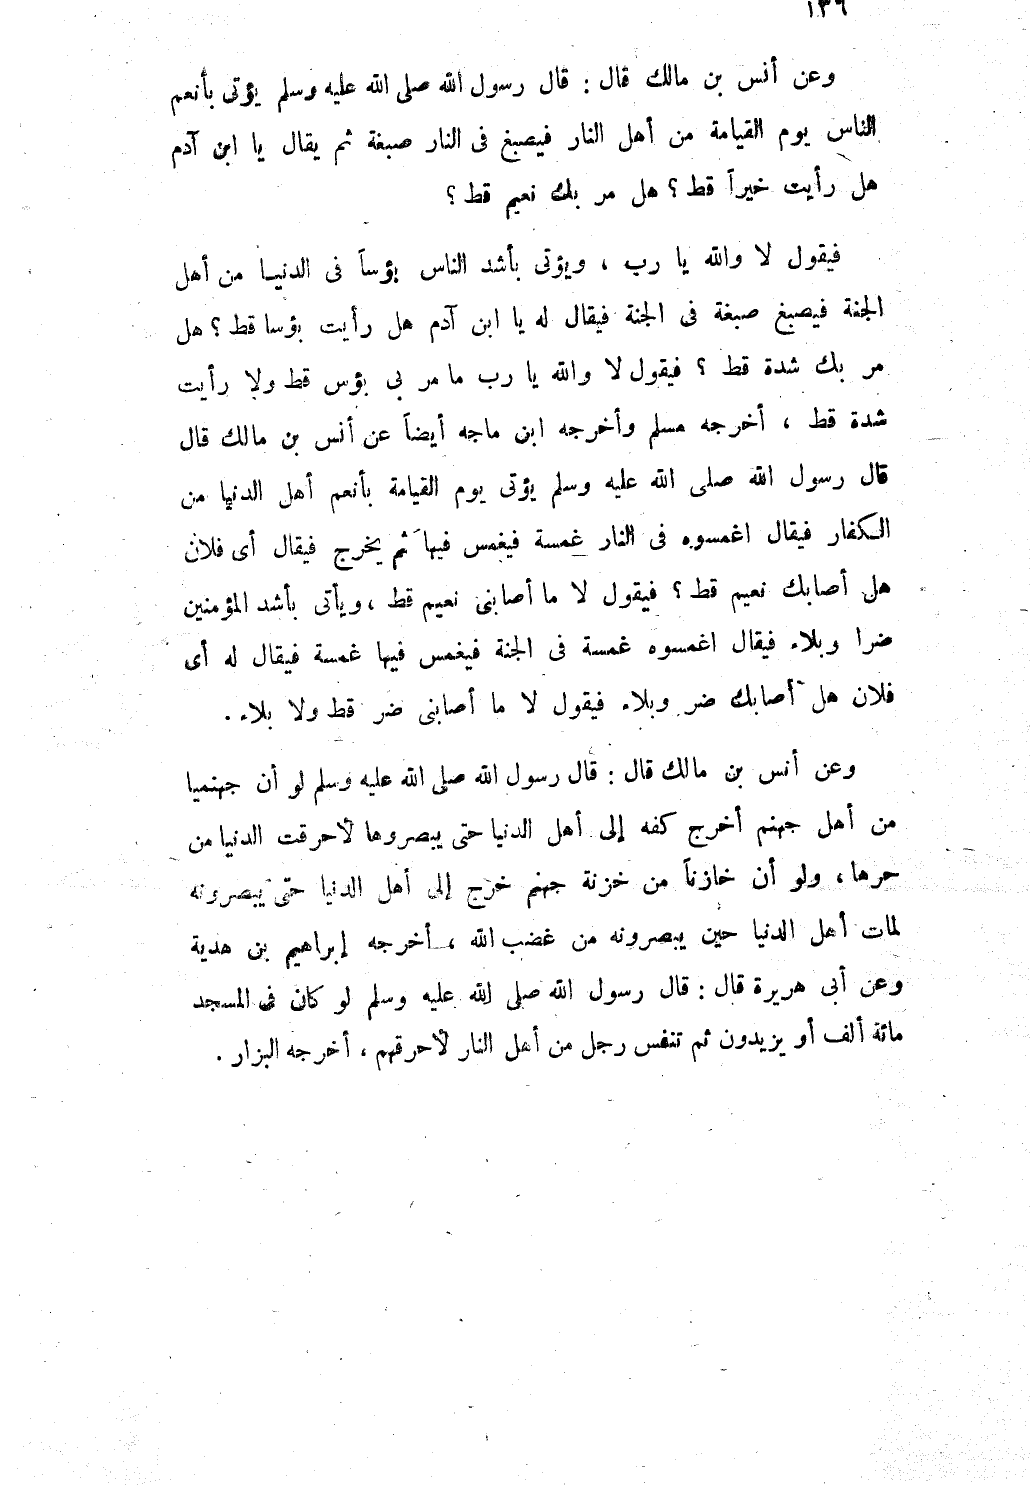 ١٣٦
وعن أنس بن مالك قال : قال رسول الله صلى الله عليه وسلم يؤتى بأنعم
الناس يوم القيامة من أهل النار فيصبغ فى النار صبغة ثم يقال يا ابن آدم
هل رأيت خيراً قط ؟ هل مر بك نعيم قط ؟
فيقول لا والله يا رب ، ويؤتى بأشد الناس بؤساً فى الدنيا من أهل
الجنة فيصبغ صبغة فى الجنة فيقال له يا ابن آدم هل رأيت بؤسا قط ؟ هل
مر بك شدة قط ؟ فيقول لا والله يا رب ما مر بى بؤس قط ولا رأيت
شدة قط ، أخرجه مسلم وأخرجه ابن ماجه أيضاً عن أنس بن مالك قال
قال رسول الله صلى الله عليه وسلم يؤتى يوم القيامة بأنعم أهل الدنيا من
الكفار فيقال اغمسوه فى النار غمسة فيغمس فيها ثم يخرج فيقال أى فلان
هل أصابك نعيم قط ؟ فيقول لا ما أصابنى نعيم قط ، ويأتى بأشد المؤمنين
ضرا وبلاء فيقال اغمسوه غمسة فى الجنة فيغمس فيها غمسة فيقال له أى
فلان هل أصابك ضر وبلاء فيقول لا ما أصابنى ضر قط ولا بلاء .
وعن أنس بن مالك قال : قال رسول الله صلى الله عليه وسلم لو أن جهنميا
من أهل جهنم أخرج كفه إلى أهل الدنيا حتى يبصروها لأحرقت الدنيا من
حرها ، ولو أن خازناً من خزنة جهنم خرج إلى أهل الدنيا حتى يبصرونه
لمات أهل الدنيا حين يبصرونه من غضب الله ، أخرجه إبراهيم بن هدية
وعن أبى هريرة قال : قال رسول الله صلى الله عليه وسلم لو كان فى المسجد
مائة ألف أو يزيدون ثم تنفس رجل من أهل النار لأحرقهم ، أخرجه البزار .